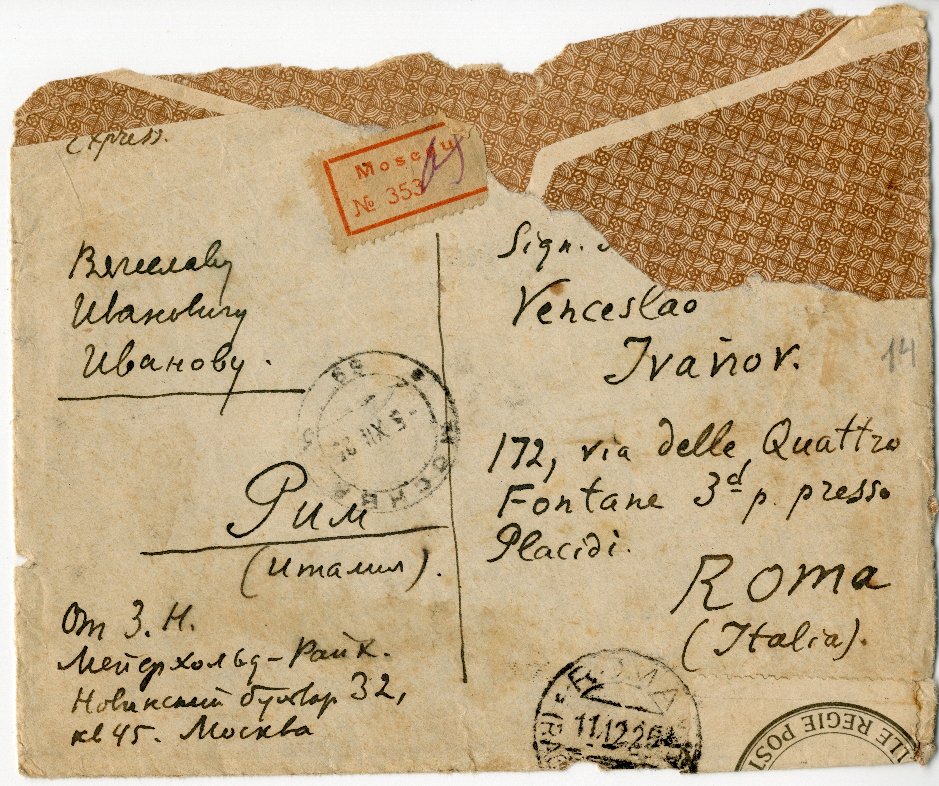 Express.
Moscou
№ 353
Вячеславу
Ивановичу
Иванову.
Рим
(Италия).
От З. Н.
Мейерхольд-Райх.
Новинский бульвар 32,
кв 45. Москва
Sign.
Venceslao
Ivanov.
14
172, via delle Quattro
Fontane 3d p. presso
Placidi.
ROMA
(Italia).
МОСКВА
5 XII 25
ROMA
11.12.25
ILE REGIE POST